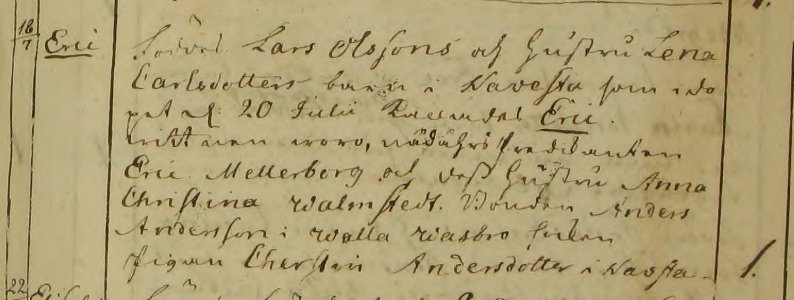 18/7 Eric föddes Lars Olssons och hustru Lena
Carlsdotters barn i Navesta som i do
pet d. 20 Julii kallades Eric.
wittnen woro, nådåhrs predikanten
Eric Mellerborg och dess hustru Anna
Christina Walmstedt. Bonden Anders
Andersson i Walla Wasbro socken
Pigan Cherstin Andersdotter i Navsta. 1.
22